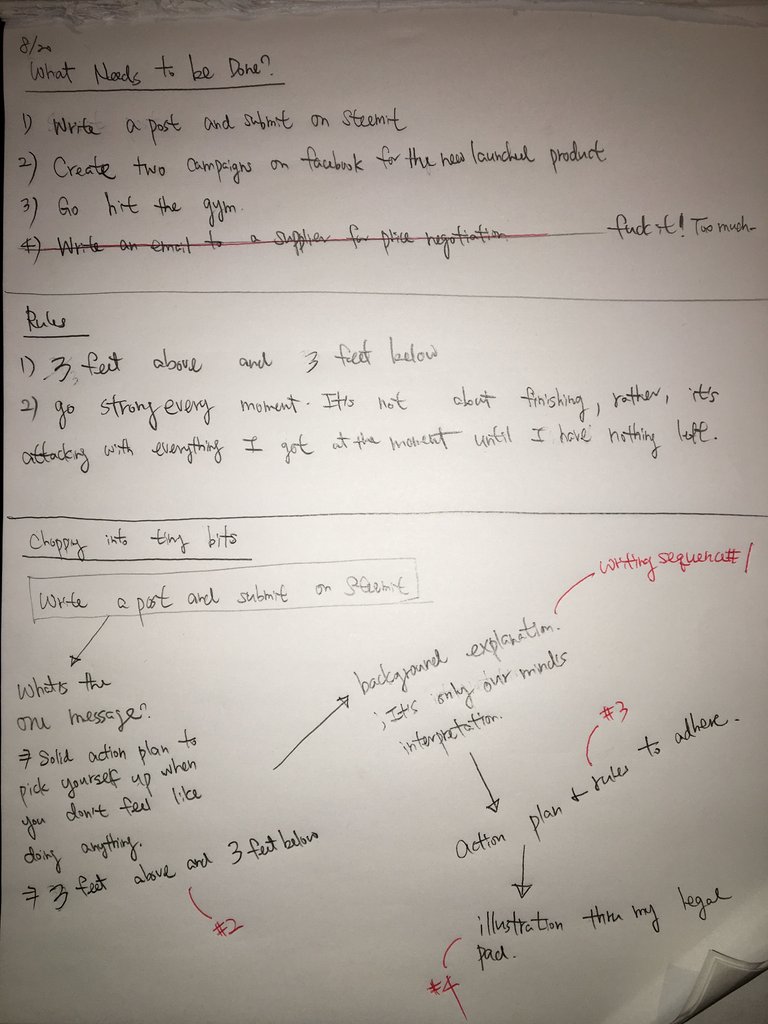 8/20
What Needs to be Done?
1) Write a post and submit on Steemit
2) Create two campaigns on facebook for the new launched product
3) Go hit the gym.
4) Write an email to a supplier for price negotiation fuck it! Too much-
Rules
1) 3 feet above and 3 feet below
2) go strong every moment. It's not about finishing, rather, it's
attacking with everything I got at the moment until I have nothing left.
Choppy into tiny bits
Write a post and submit on Steemit
What's the
one message?
⇒ Solid action plan to
pick yourself up when
you don't feel like
doing anything.
⇒ 3 feet above and 3 feet below
#2
background explanation.
; It's only our minds
interpretation.
writing sequence #1
#3
Action plan & rules to adhere.
illustration thru my legal
pad.
#4